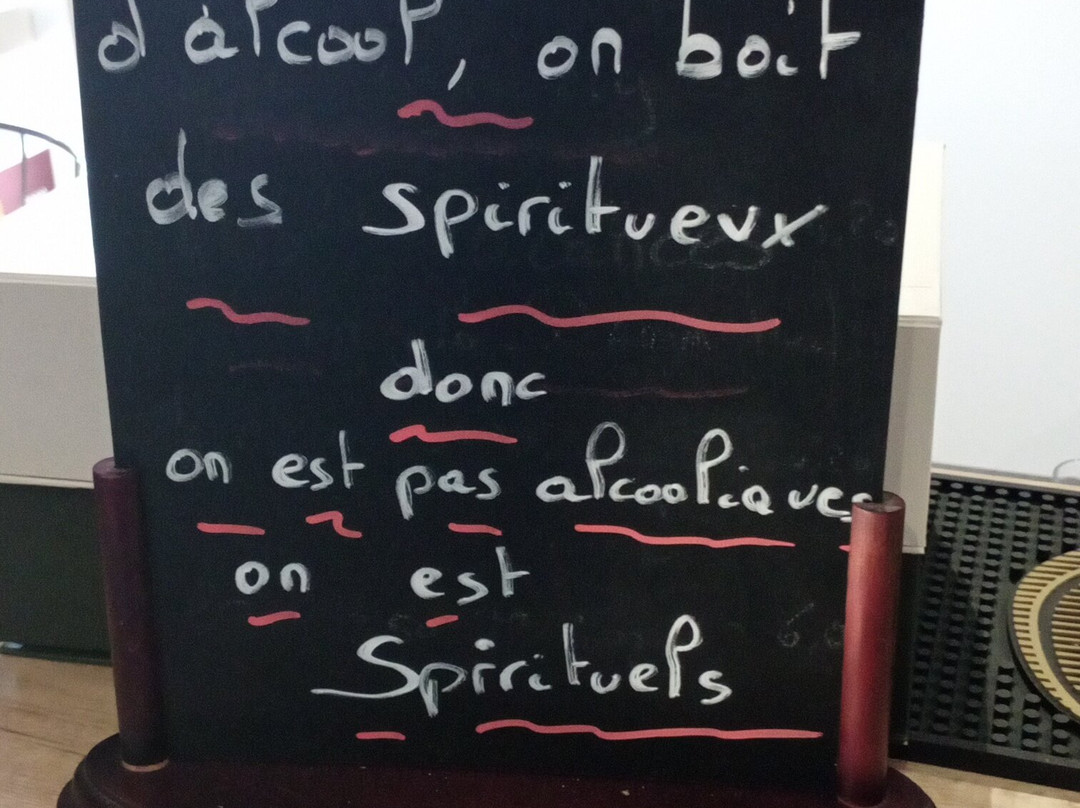 d'alcool, on boit
des spiritueux
donc
on est pas alcooliques
on est
Spirituels